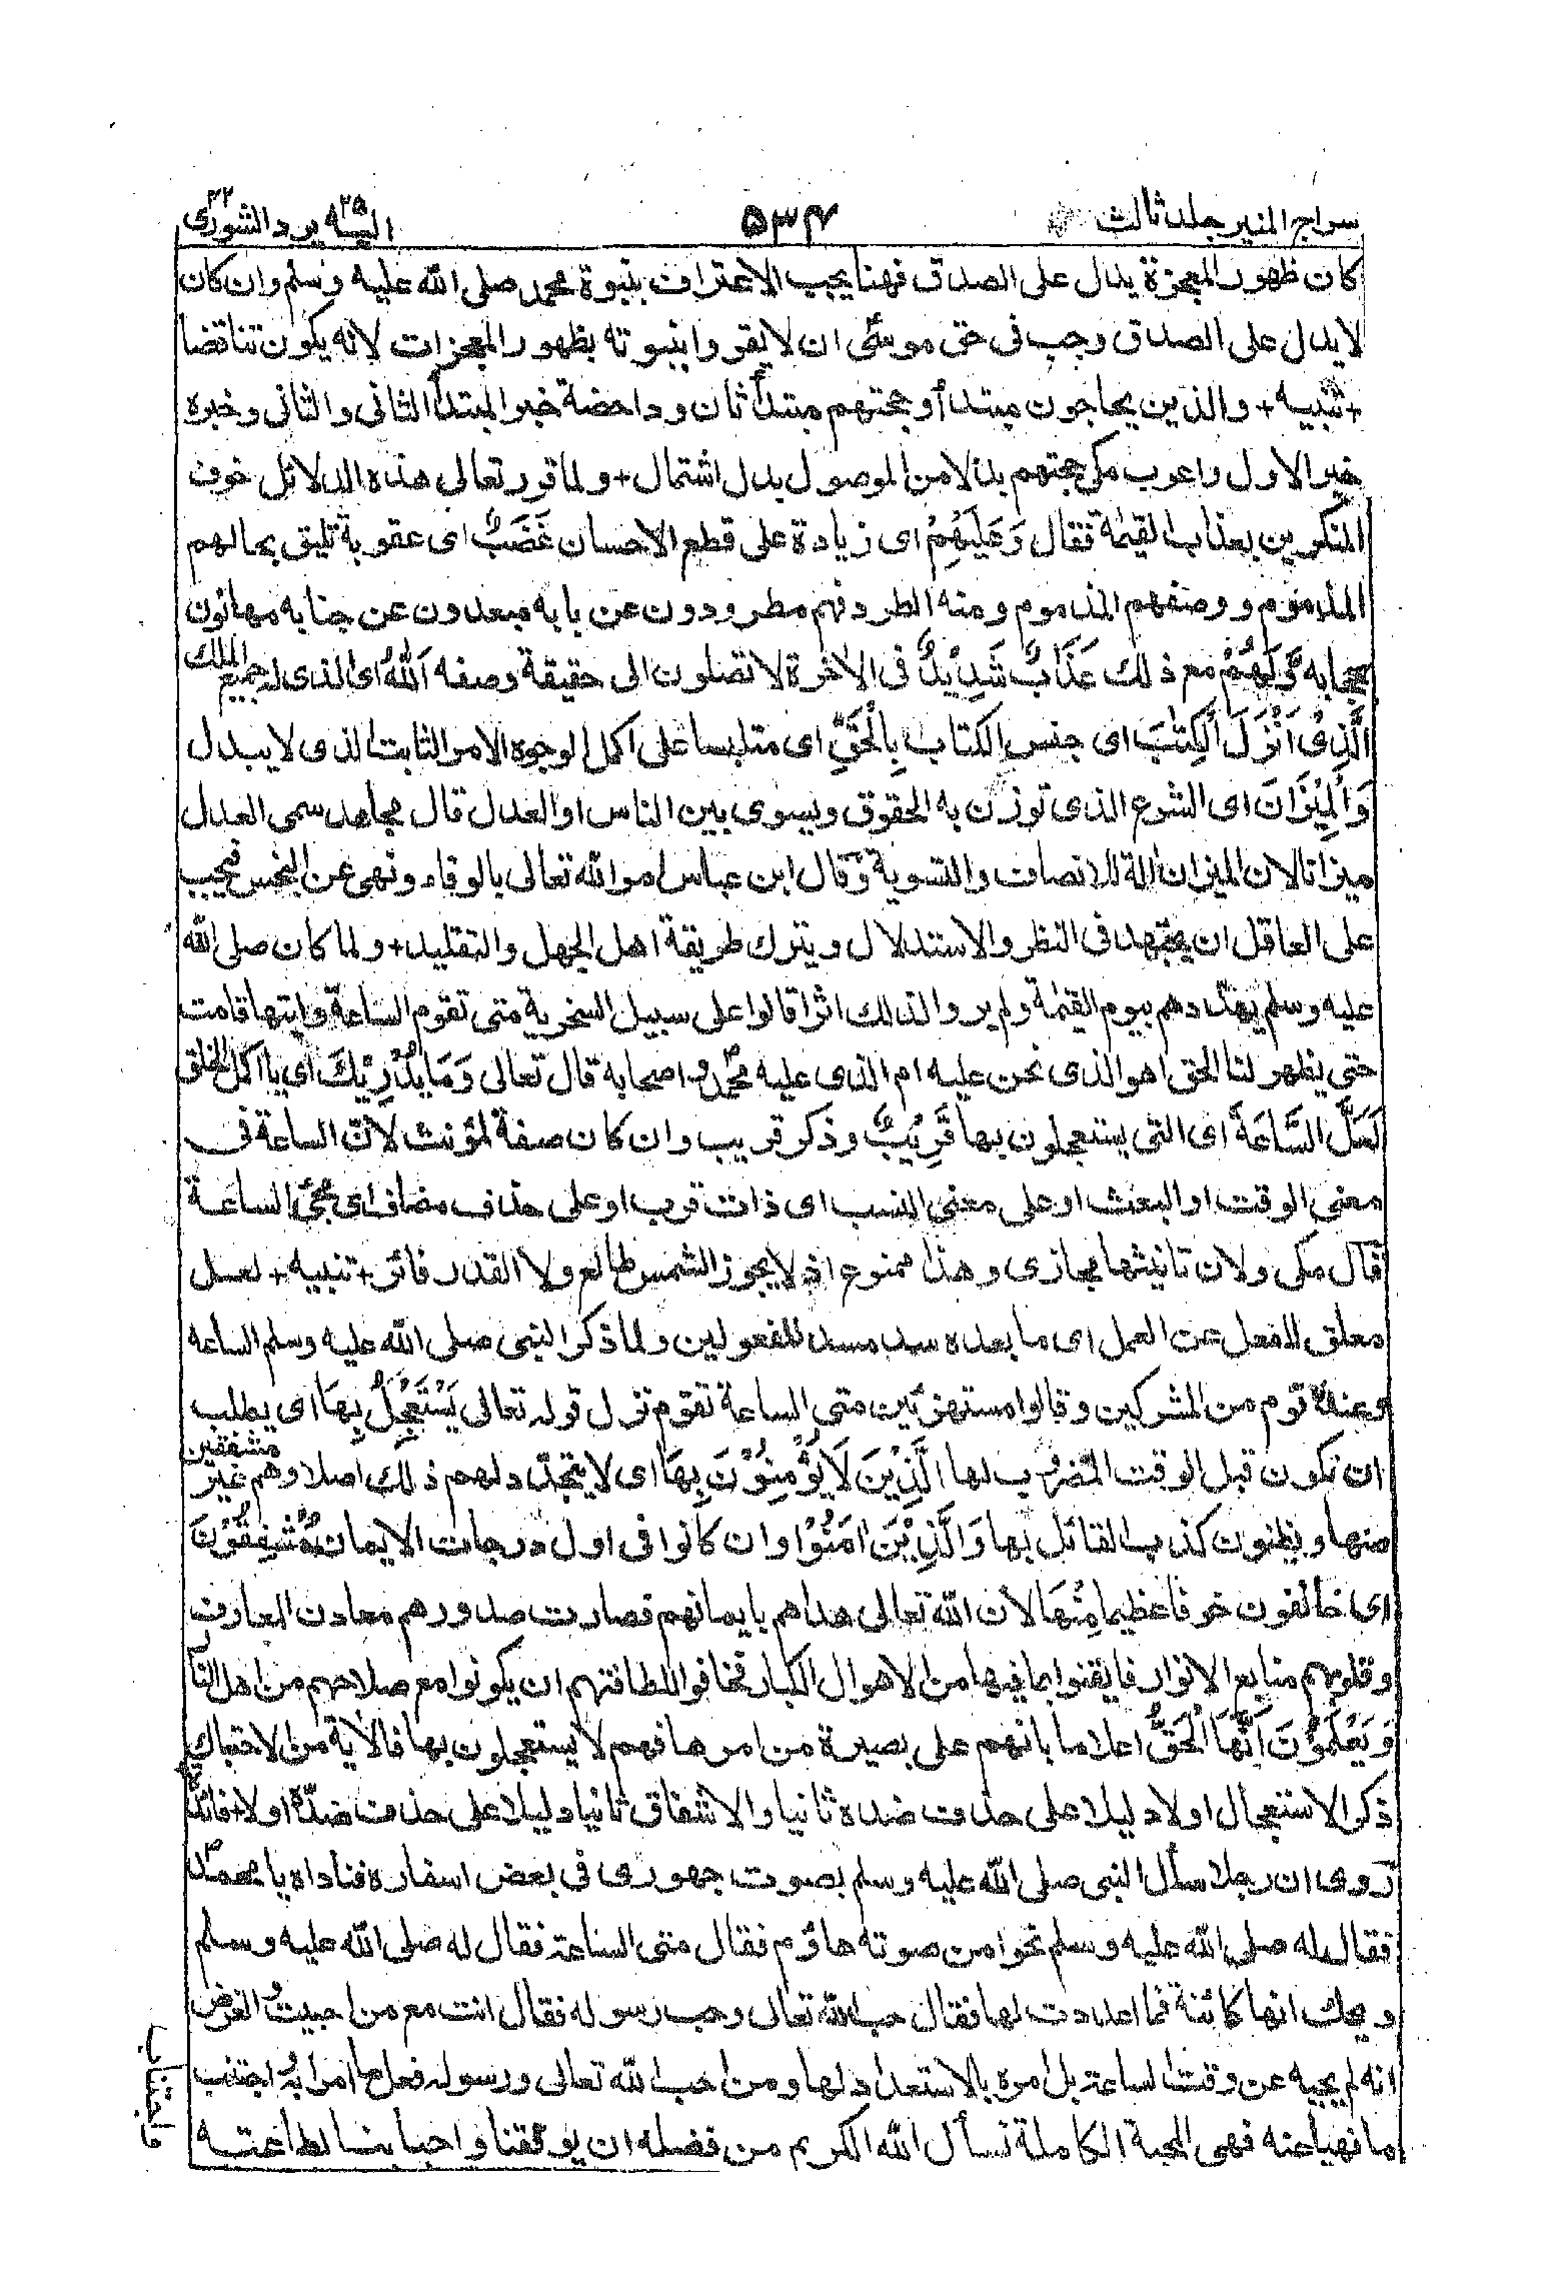 سراج المنير جلد ثالث ۵۳۴ اليه يرد ۲۵ الشورى ۴۲
كان ظهور المعجزة يدل على الصدق فهنا يجب الاعتراف بنبوة محمد صلى الله عليه وسلم وان كان
لا يدل على الصدق وجب فى حق موسى ان لا يقروا بنبوته بظهور المعجزات لانه يكون تناقضا
+ تنبيه + والذين يحاجون مبتدأ وحجتهم مبتدأ ثان وداحضة خبر المبتدأ الثانى والثانى وخبره
خبر الاول واعرب مكى حجتهم بدلا من الموصول بدل اشتمال + ولما قرر تعالى هذه الدلائل خوف
المنكرين بعذاب القيمة فقال وَعَلَيْهِمْ اى زيادة على قطع الاحسان غَضَبٌ اى عقوبة تليق بحالهم
المذموم ووصفهم المذموم ومنه الطرد فهم مطرودون عن بابه مبعدون عن جنابه مهانون
بحجابه وَّلَهُمْ مع ذلك عَذَابٌ شَدِيْدٌ فى الاخرة لا تصلون الى حقيقة وصفه اَللّٰهُ اى الذى له جميع الملك
الَّذِىْ اَنْزَلَ الْكِتٰبَ اى جنس الكتاب بِالْحَقِّ اى متلبسا على اكمل الوجوه الامر الثابت الذى لا يبدل
وَالْمِيْزَانَ اى الشرع الذى توزن به الحقوق ويسوى بين الناس او العدل قال مجاهد سمى العدل
ميزانا لان الميزان الة للانصاف والتسوية وقال ابن عباس امر الله تعالى بالوفاء ونهى عن البخس فيجب
على العاقل ان يجتهد فى النظر والاستدلال ويترك طريقة اهل الجهل والتقليد + ولما كان صلى الله
عليه وسلم يهددهم بيوم القيمة ولم يروا لذلك اثرا قالوا على سبيل السخرية متى تقوم الساعة وليتها قامت
حتى يظهر لنا الحق اهو الذى نحن عليه ام الذى عليه محمد واصحابه قال تعالى وَمَا يُدْرِيْكَ اى يا اكمل الخلق
لَعَلَّ السَّاعَةَ اى التى يستعجلون بها قَرِيْبٌ وذكر قريب وان كان صفة لمؤنث لان الساعة فى
معنى الوقت او البعث او على معنى النسب اى ذات قرب او على حذف مضاف اى مجئ الساعة
قال مكى ولان تانيثها مجازى وهذا ممنوع اذ لا يجوز الشمس طالع ولا القدر فائر + تنبيه + لعل
معلق للفعل عن العمل اى ما بعده سد مسد المفعولين ولما ذكر النبى صلى الله عليه وسلم الساعه
وعنده قوم من المشركين وقالوا مستهزئين متى الساعة تقوم نزل قوله تعالى يَسْتَعْجِلُ بِهَا اى يطلب
ان تكون قبل الوقت المضروب لها الَّذِيْنَ لَا يُؤْمِنُوْنَ بِهَا اى لا يتجدد لهم ذلك اصلا وهم غير مشفقين
منها ويظنون كذب القائل بها وَالَّذِيْنَ اٰمَنُوْا وان كانوا فى اول درجات الايمان مُشْفِقُوْنَ
اى خائفون خوفا عظيما مِنْهَا لان الله تعالى هداهم بايمانهم فصارت صدورهم معادن المعارف
وقلوبهم منابع الانوار فايقنوا بما فيها من الاهوال الكبار فخافوا للطافتهم ان يكونوا مع صلاحهم من اهل النار
وَيَعْلَمُوْنَ اَنَّهَا الْحَقُّ اعلاما بانهم على بصيرة من امرها فهم لا يستعجلون بها فالاية من الاحتباك
ذكر الاستعجال اولا دليلا على حذف ضده ثانيا والاشفاق ثانيا دليلا على حذف ضده اولا + فائدة
روى ان رجلا سأل النبى صلى الله عليه وسلم بصوت جهورى فى بعض اسفاره فناداه يا محمد
فقال له صلى الله عليه وسلم نحوا من صوته هاؤم فقال متى الساعة فقال له صلى الله عليه وسلم
ويحك انها كائنة فما اعددت لها فقال حب الله تعالى وحب رسوله فقال انت مع من احببت والغرض
انه لم يجبه عن وقت الساعة بل امره بالاستعداد لها ومن احب الله تعالى ورسوله فعل ما امرا به واجتنب
ما نهيا عنه فهى المحبة الكاملة نسأل الله الكريم من فضله ان يوفقنا واحبابنا لطاعته
واجتناب